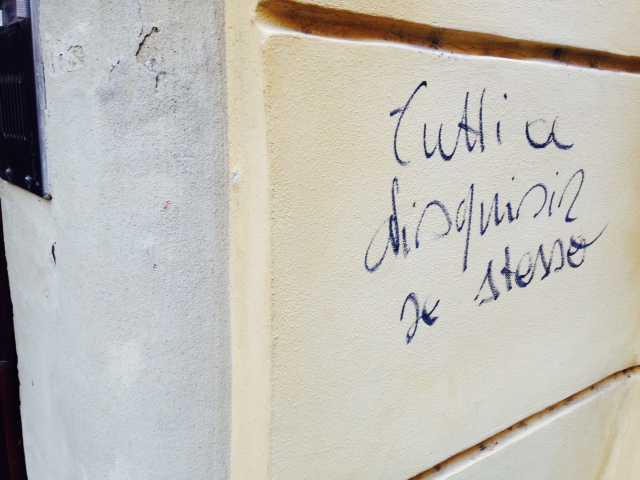 Tutti a
disquisir
se stesso